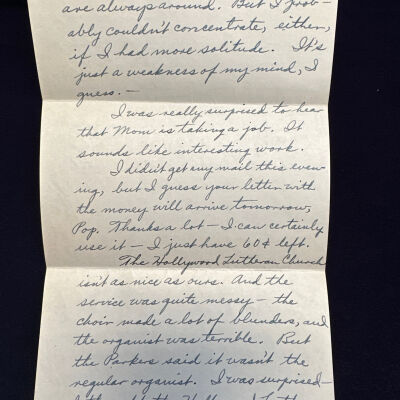 are always around. But I prob-
ably couldn't concentrate, either,
if I had more solitude. It's
just a weakness of my mind, I
guess. —
I was really surprised to hear
that Mom is taking a job. It
sounds like interesting work.
I didn't get any mail this even-
ing, but I guess your letter with
the money will arrive tomorrow,
Pop. Thanks a lot — I can certainly
use it — I just have 60¢ left.
The Hollywood Lutheran Church
isn't as nice as ours. And the
service was quite messy — the
choir made a lot of blunders, and
the organist was terrible. But
the Parkers said it wasn't the
regular organist. I was surprised —